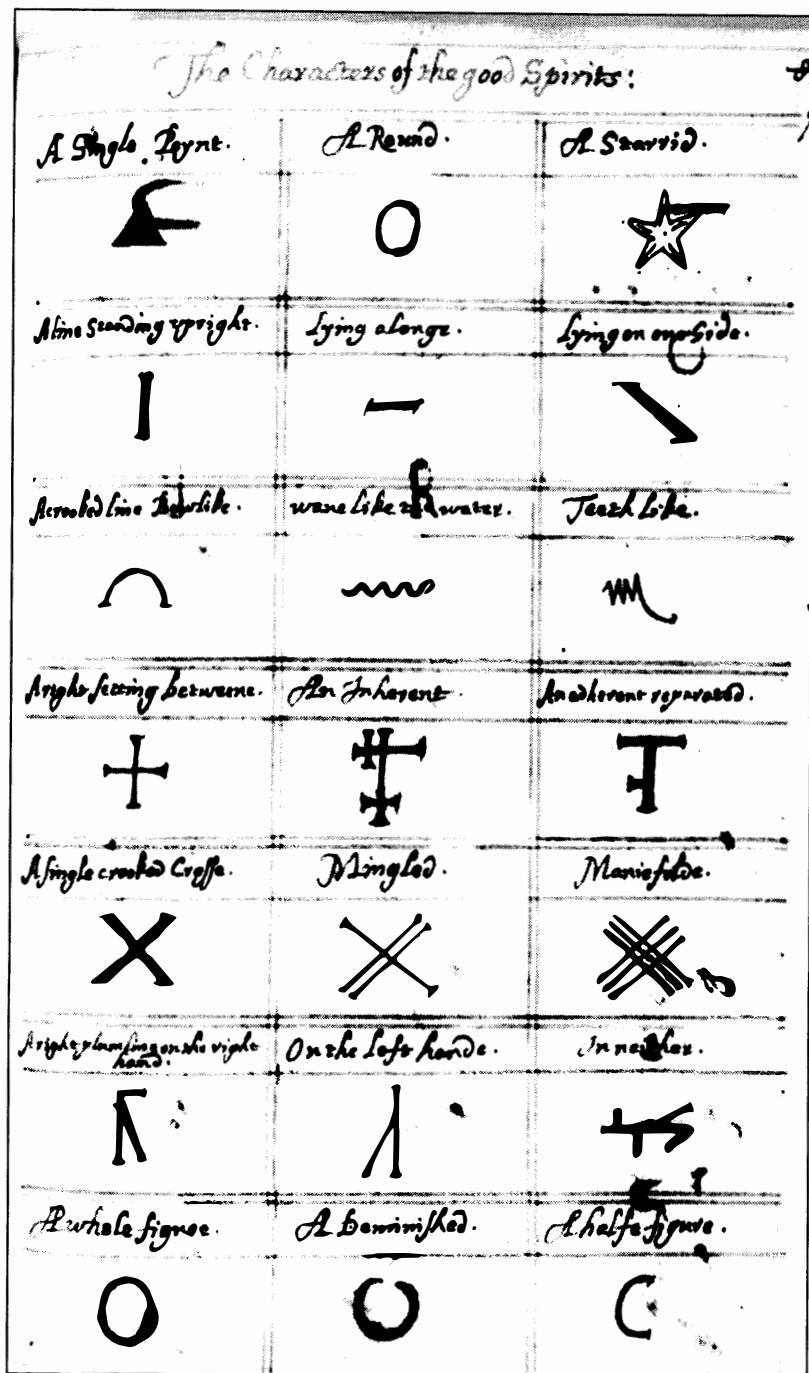 The Characters of the good Spirits:
A Single Poynt.
A Round.
A Starrid.
A line Standing upright.
Lying alonge.
Lying on one Side.
A crooked line Bowlike.
wave like the water.
Teeth like.
A right setting betweene.
An Inherent.
An adherent separated.
A single crooked Crosse.
Mingled.
Maniefolde.
A right on the right
hand.
On the left hande.
In neither.
A whole figure.
A Deminished.
A halfe figure.